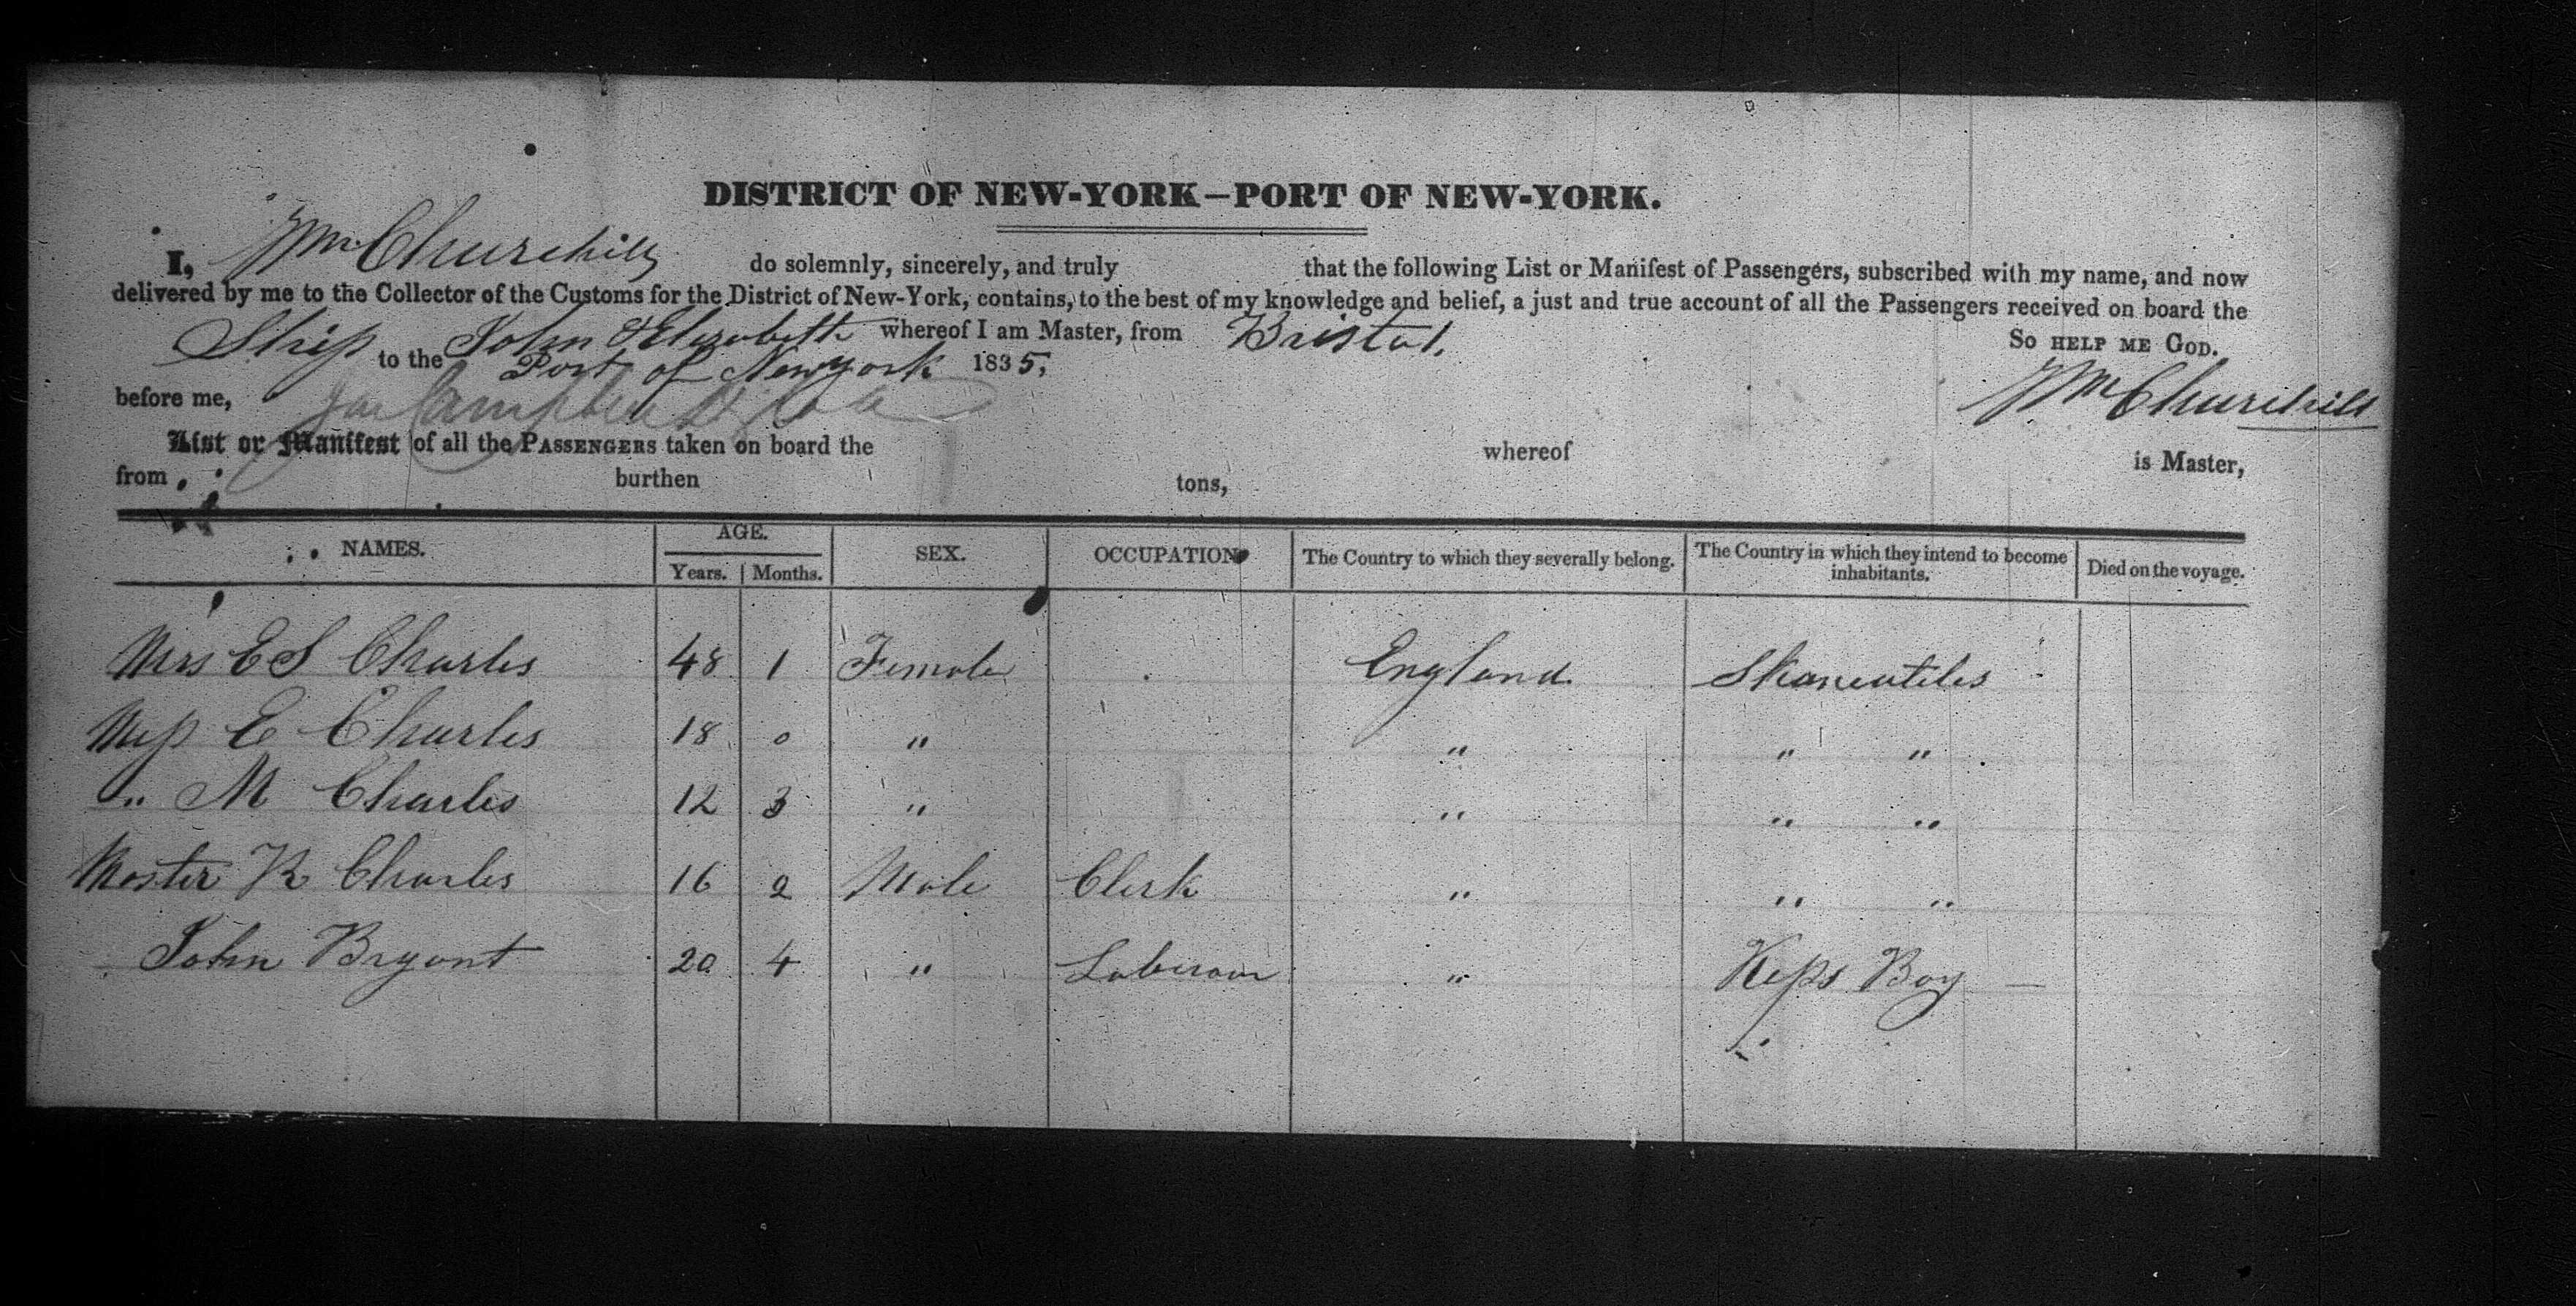 DISTRICT OF NEW-YORK—PORT OF NEW-YORK.
I, Wm Churchill do solemnly, sincerely, and truly that the following List or Manifest of Passengers, subscribed with my name, and now
delivered by me to the Collector of the Customs for the District of New-York, contains, to the best of my knowledge and belief, a just and true account of all the Passengers received on board the
Ship John & Elizabeth whereof I am Master, from Bristol. So help me God.
to the Port of Newyork 1835,
before me, Wm Churchill
List or Manifest of all the Passengers taken on board the whereof is Master,
from burthen tons,
NAMES. AGE. Years. Months. SEX. OCCUPATION The Country to which they severally belong. The Country in which they intend to become inhabitants. Died on the voyage.
Mrs E S Charles 48 1 Female England Skaneatiles
Miss E Charles 18 0 " " " "
" M Charles 12 3 " " " "
Master R Charles 16 2 Male Clerk " " "
John Bryant 20 4 " Laberour " Keps Bay —